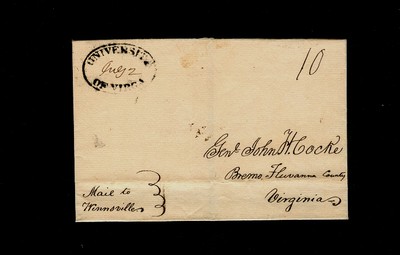 UNIVERSITY
July 2
OF VIRGA
10
Genl. John H. Cocke
Bremo, Fluvanna County
Virginia
Mail to
Winnsville